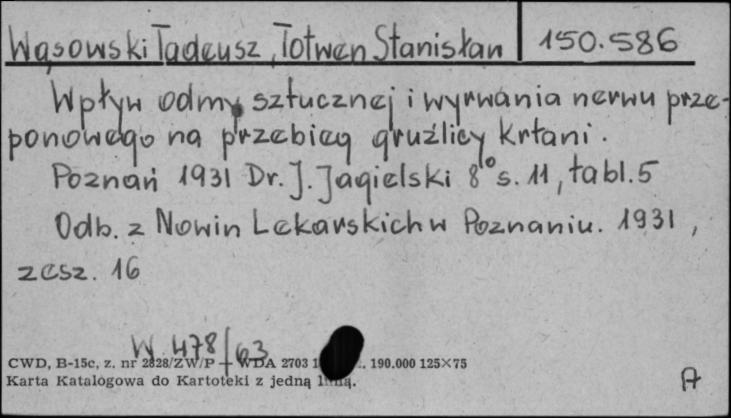 Wąsowski Tadeusz, Totwen Stanisław 150.586
Wpływ odmy sztucznej i wyrwania nerwu prze-
ponowego na przebieg gruźlicy krtani.
Poznań 1931 Dr. J. Jagielski 8° s. 11, tabl. 5
Odb. z Nowin Lekarskich w Poznaniu. 1931,
zesz. 16
W. 478/63
CWD, B-15c, z. nr 2828/ZW/P — WDA 2703 190.000 125×75
Karta Katalogowa do Kartoteki z jedną linią.
A